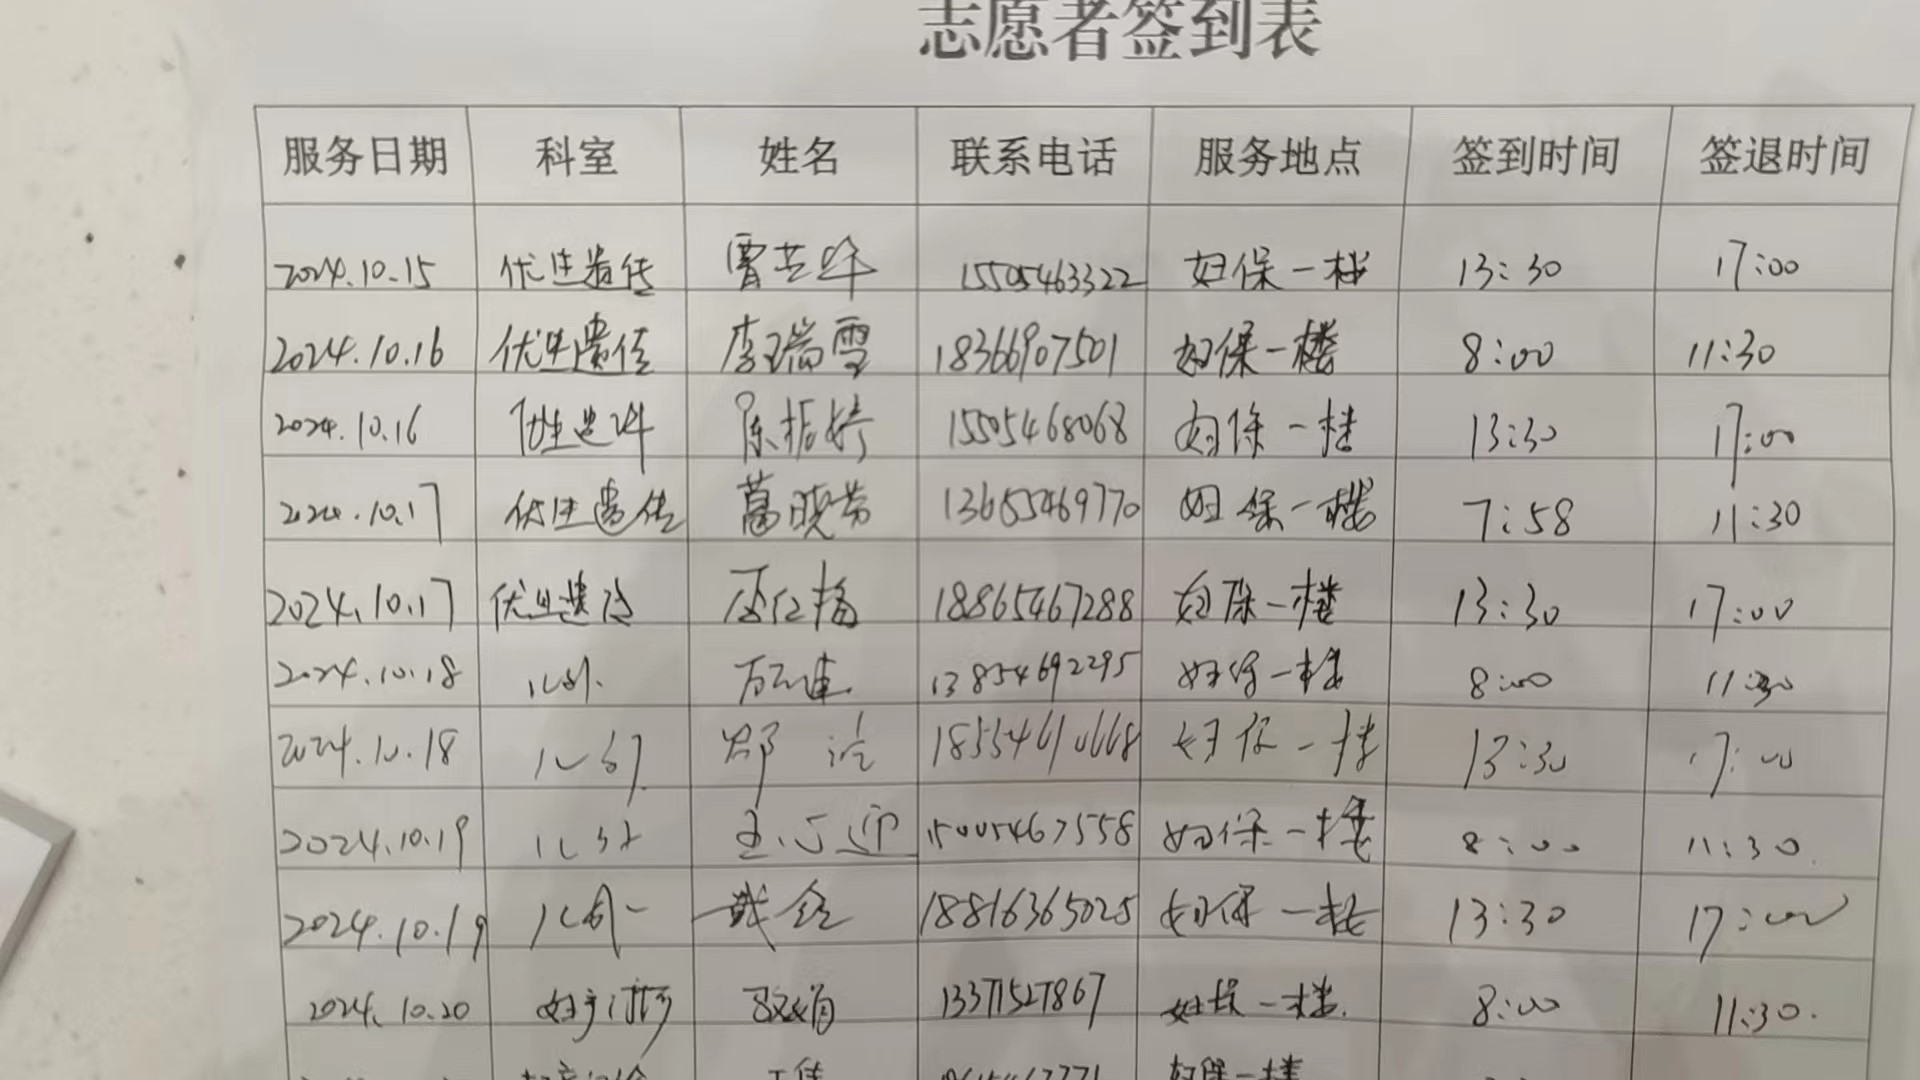 志愿者签到表
服务日期 科室 姓名 联系电话 服务地点 签到时间 签退时间
2024.10.15 优生遗传 15505463322 妇保一楼 13:30 17:00
2024.10.16 优生遗传 李瑞雪 18366907501 妇保一楼 8:00 11:30
2024.10.16 优生遗传 陈振婷 15505468068 妇保一楼 13:30 17:00
2024.10.17 优生遗传 葛晓芳 13655469770 妇保一楼 7:58 11:30
2024.10.17 优生遗传 18865467288 妇保一楼 13:30 17:00
2024.10.18 儿外 13854692295 妇保一楼 8:00 11:30
2024.10.18 儿外 妇保一楼 13:30 17:00
2024.10.19 儿外 15005467558 妇保一楼 8:00 11:30
2024.10.19 儿外 18816365025 妇保一楼 13:30 17:00
2024.10.20 妇产门诊 13371527867 妇保一楼 8:00 11:30.
妇保一楼